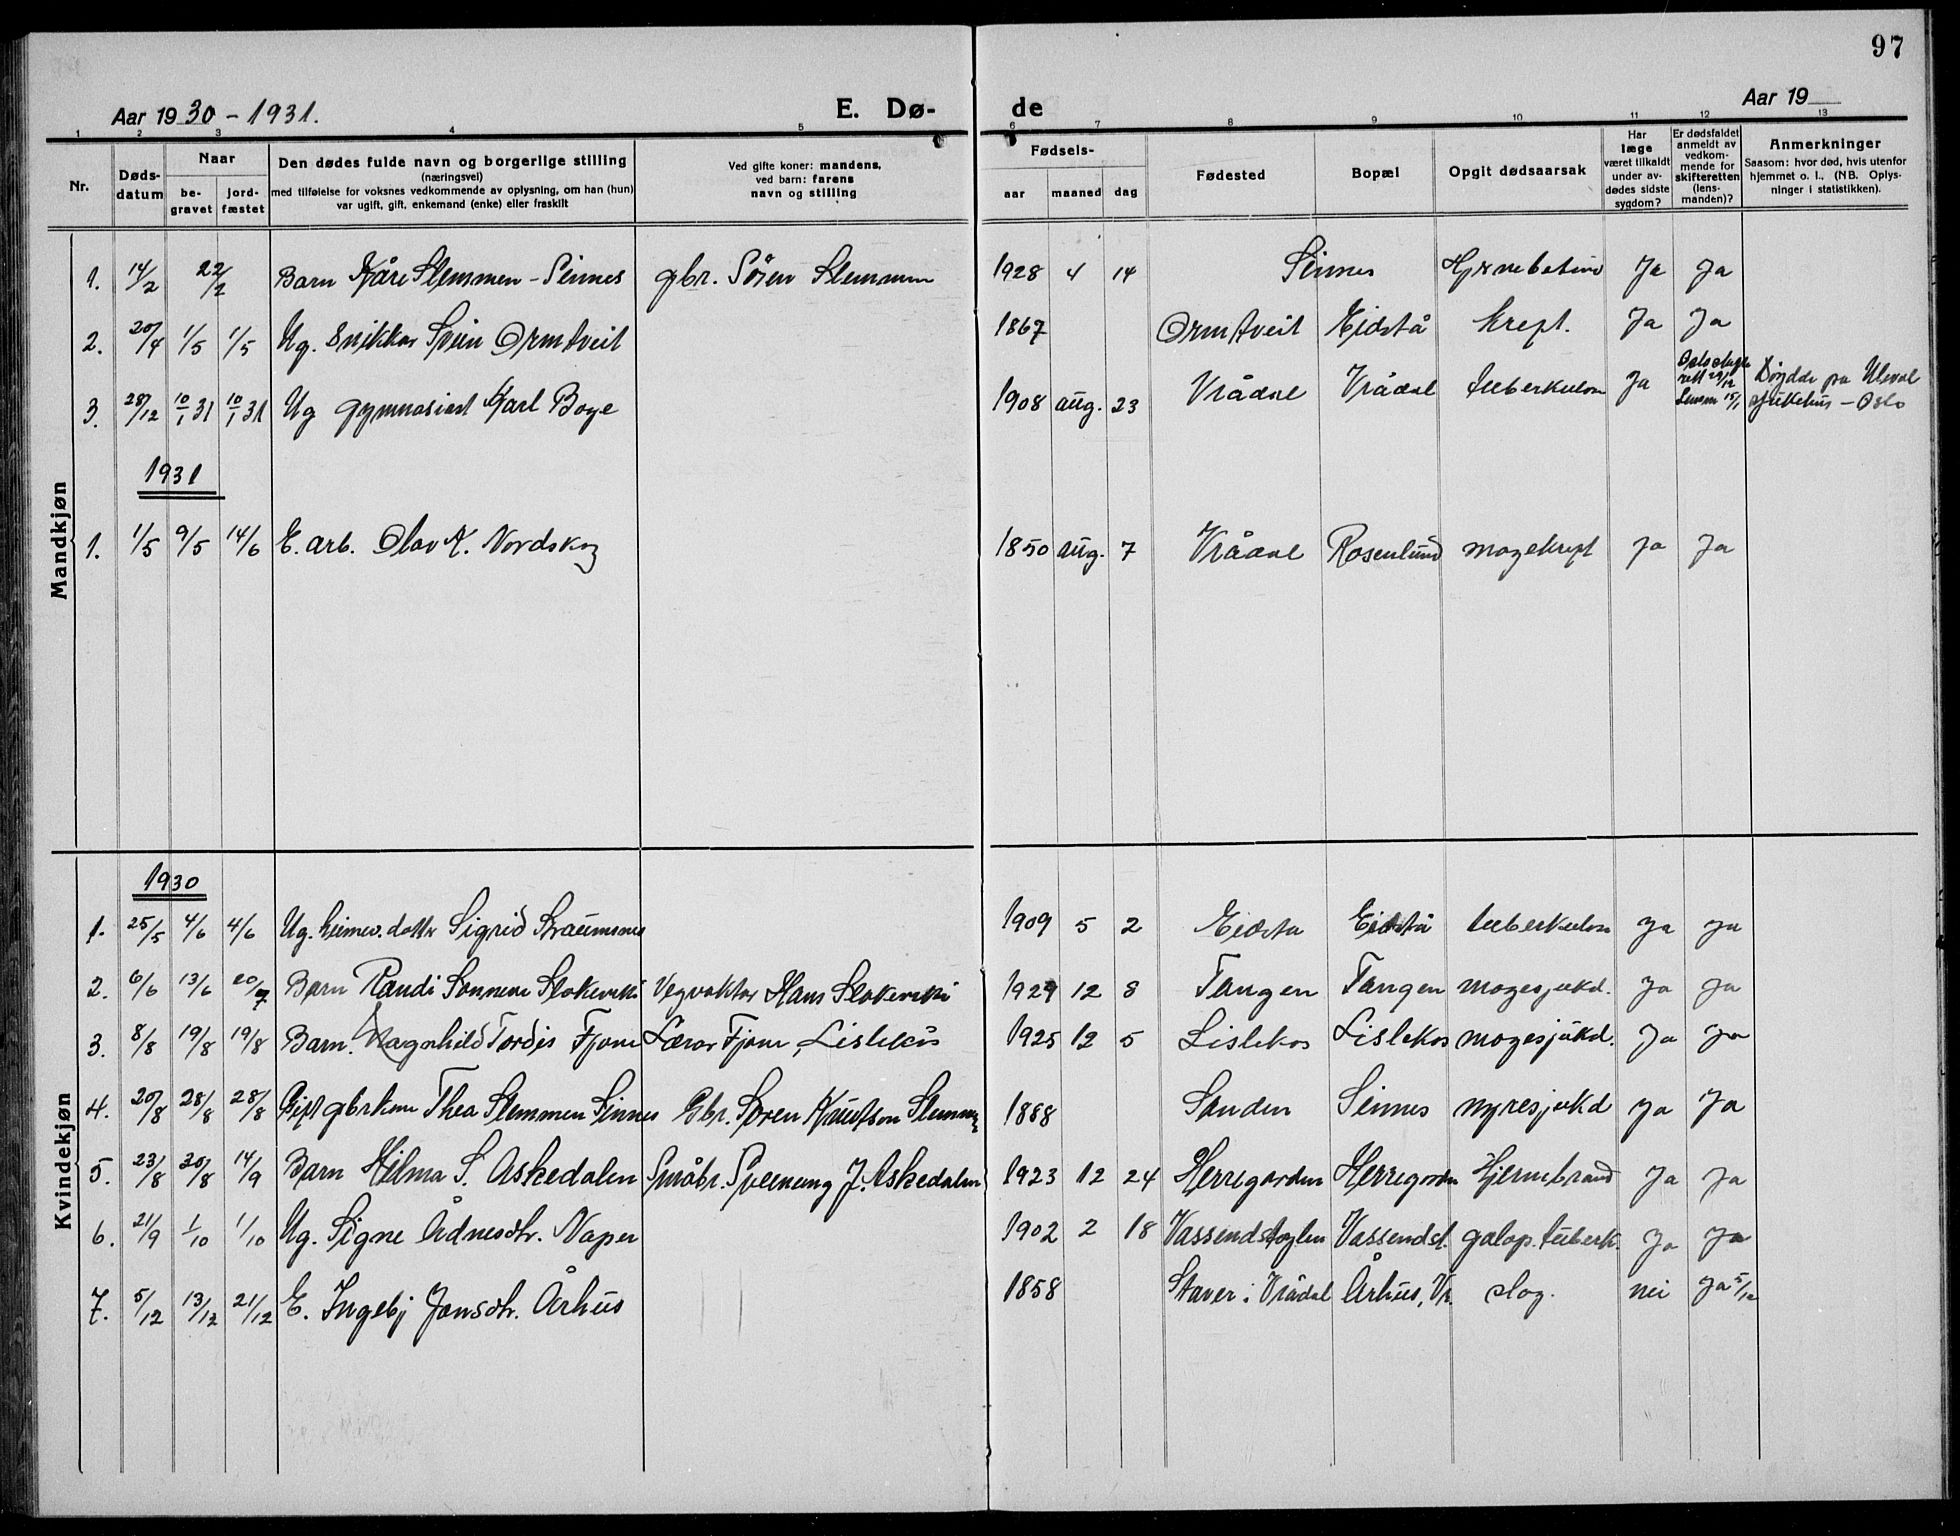 97
Aar 1930 - 1931. E. Dø- de Aar 19
1 2 3 4 5 6 7 8 9 10 11 12 13
Nr. Døds-datum Naar be-gravet jord-fæstet Den dødes fulde navn og borgerlige stilling (næringsvei) med tilføielse for voksnes vedkommende av oplysning, om han (hun) var ugift, gift, enkemand (enke) eller fraskilt Ved gifte koner: mandens, ved barn: farens navn og stilling Fødsels- aar maaned dag Fødested Bopæl Opgit dødsaarsak Har læge været tilkaldt under av-dødes sidste sygdom? Er dødsfaldet anmeldt av vedkom-mende for skifteretten (lens-manden)? Anmerkninger Saasom: hvor død, hvis utenfor hjemmet o. l., (NB. Oplys-ninger i statistikken).
Mandkjøn
1. 14/2 22/2 Barn Kåre Slemmen - Sinnes gbr. Sören Slemmen 1928 4 14 Sinnes Ja Ja
2. 20/4 1/5 1/5 Ug. Snikkar Svein Ormtveit 1867 Ormtveit Eidstå kreft. Ja Ja
3. 28/12 10/1 31 10/1 31 Ug gymnasiast Karl Boye 1908 aug. 23 Vrådal Vrådal tuberkulose Ja 29/12 15/1 Döydde på Uleval sjukehus - Oslo
1931
1. 1/5 9/5 14/6 E. arb. Olav K. Nordskog 1850 aug. 7 Vrådal Rosenlund magekreft Ja Ja
Kvindekjøn
1930
1. 25/5 4/6 4/6 Ug. heimev. dotter Sigrid Straumsnes 1909 5 2 Eidstå Eidstå tuberkulose Ja Ja
2. 6/6 13/6 20/7 Barn Randi Sonneve Slokviki Vegvaktar Hans Slokviki 1929 12 8 Tangen Tangen magesjukd. Ja Ja
3. 8/8 19/8 19/8 Barn. Ragnhild Tordis Fjone Lærar Fjone, Lislekås 1925 12 5 Lislekås Lislekås magesjukd. Ja Ja
4. 20/8 28/8 28/8 Gift gbrkone Thea Slemmen Sinnes Gbr. Sören Knutson Slemmen 1888 Sanden Sinnes nyresjukd Ja Ja
5. 23/8 30/8 14/9 Barn Hilma S. Askedalen Småbr. Sveinung J. Askedalen 1923 12 24 Herregarden Herregarden Hjernebrand Ja Ja
6. 21/9 1/10 1/10 Ug. Signe Ådnesdtr. Naper 1902 2 18 Vassendstoglen Vassendst. galop. tuberk. Ja Ja
7. 5/12 13/12 21/12 E. Ingebj Jonsdtr. Århus 1858 Staver i Vrådal Århus, Vr. slag. nei Ja 5/12